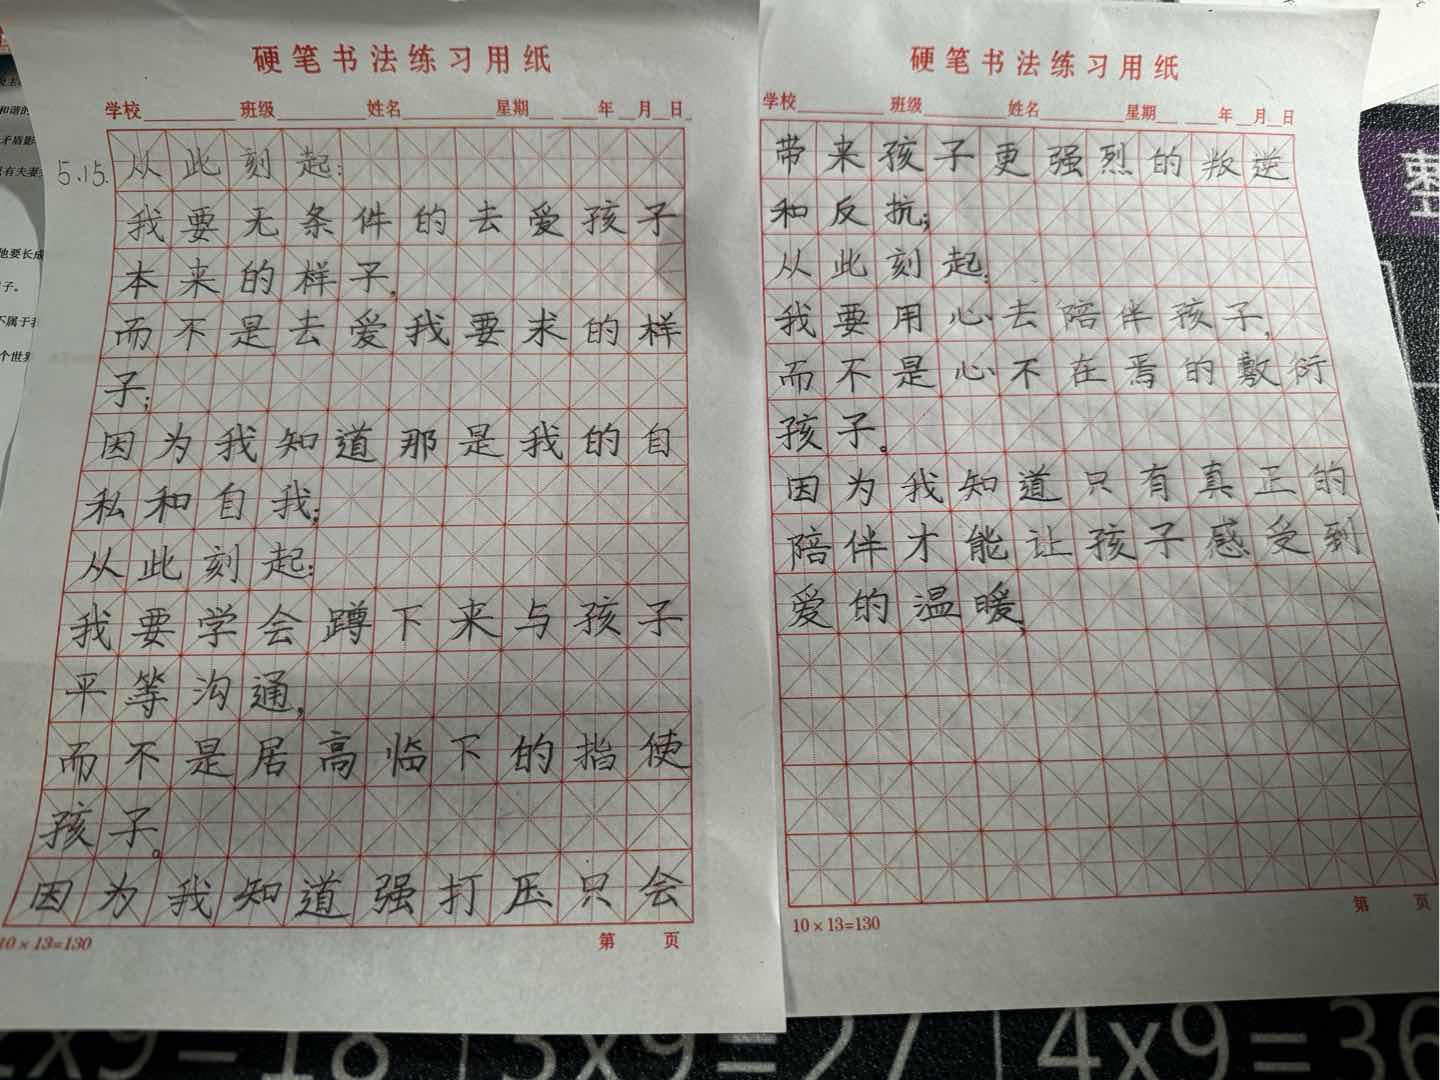 硬笔书法练习用纸
学校 班级 姓名 星期 年 月 日
5.15. 从此刻起:
我要无条件的去爱孩子
本来的样子,
而不是去爱我要求的样
子;
因为我知道那是我的自
私和自我;
从此刻起:
我要学会蹲下来与孩子
平等沟通,
而不是居高临下的指使
孩子。
因为我知道强打压只会
10×13=130 第 页
硬笔书法练习用纸
学校 班级 姓名 星期 年 月 日
带来孩子更强烈的叛逆
和反抗;
从此刻起:
我要用心去陪伴孩子,
而不是心不在焉的敷衍
孩子。
因为我知道只有真正的
陪伴才能让孩子感受到
爱的温暖,
10×13=130 第 页
和谐的
矛盾影
他要长成
子。
不属于我
个世界
x9=18 3x9=27 4x9=36